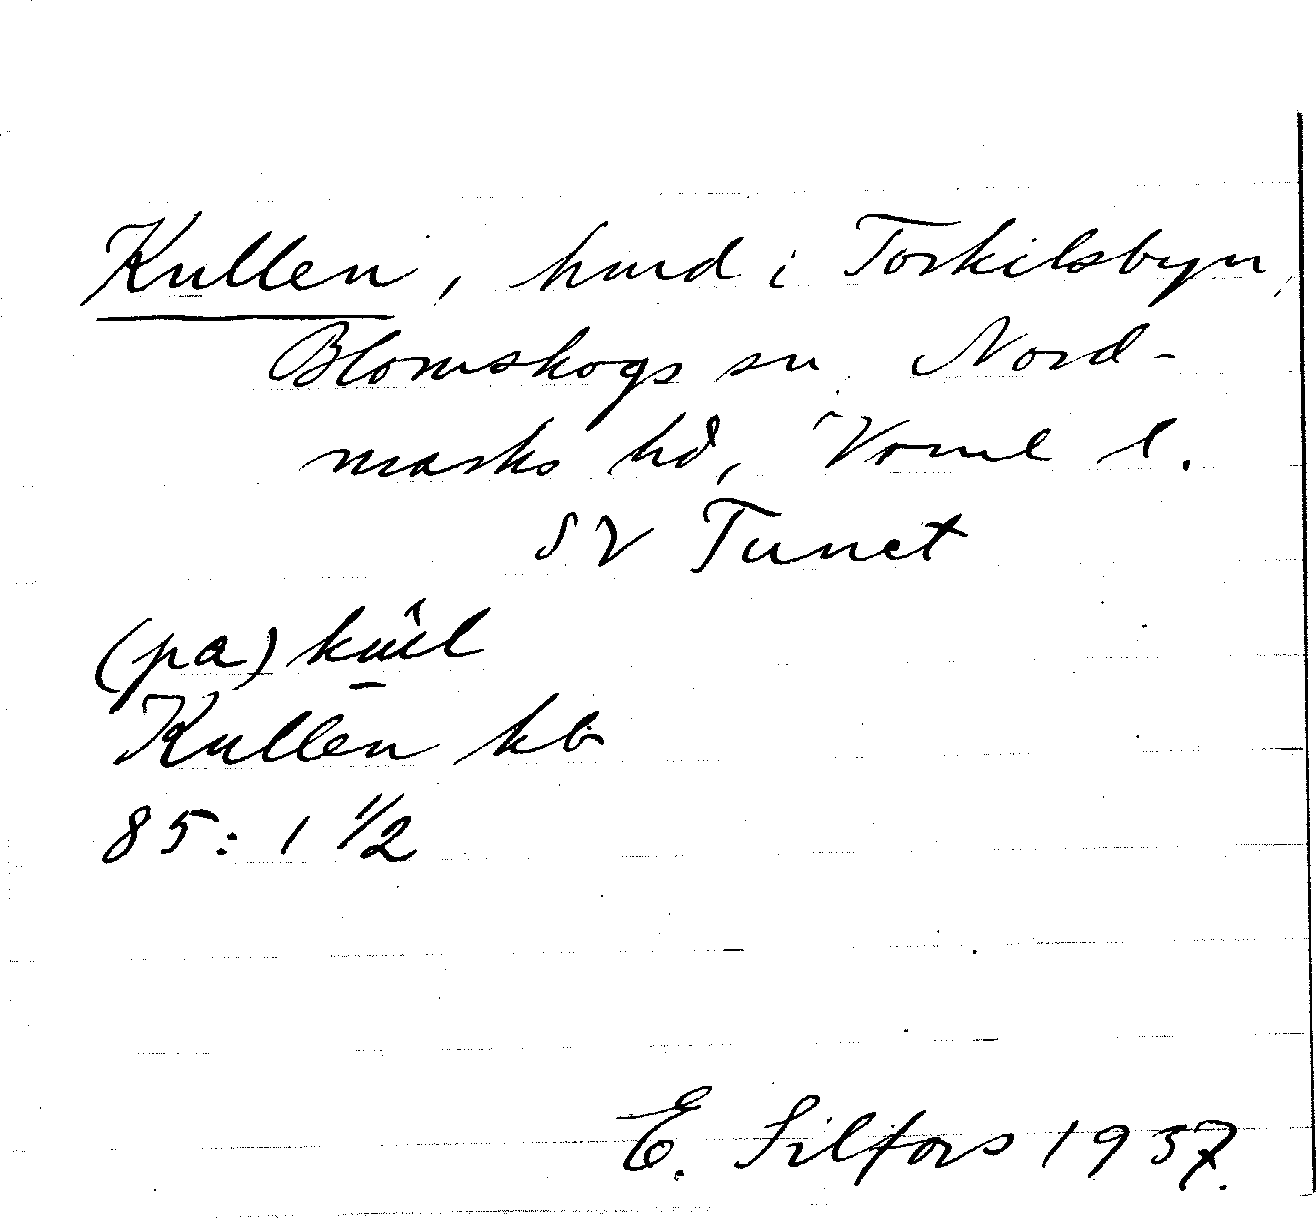 Kullen, hmd i Torkilsbyn,
Blomskogs sn, Nord-
marks hd, Värml l.
SV Tunet
(pa)
Kullen kb
85: 1 1/2
E. Silfors 1937.